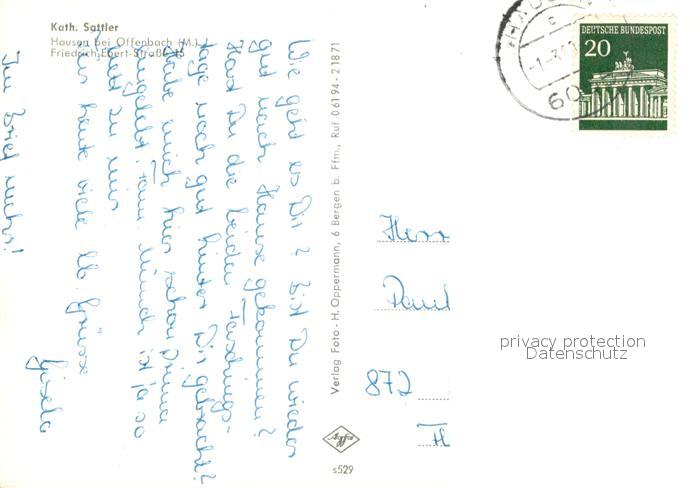 Kath. Sattler
Hausen bei Offenbach (M.) /
Friedrich-Ebert-Straße 15
Wie geht es Dir? Bist Du wieder
gut nach Hause gekommen?
Hast Du die beiden Faschings-
tage noch gut hinter Dir gebracht?
Habe mich hier schon prima
eingelebt. Fam. Münch ist ja so
nett zu mir
Für heute viele lb. Grüsse
Gisela
Im Brief mehr!
Verlag Foto - H. Oppermann, 6 Bergen b. Ffm., Ruf 06194 - 21871
Agfa
s529
HAUS
60
DEUTSCHE BUNDESPOST
20
Herr
Paul
872
H
privacy protection
Datenschutz